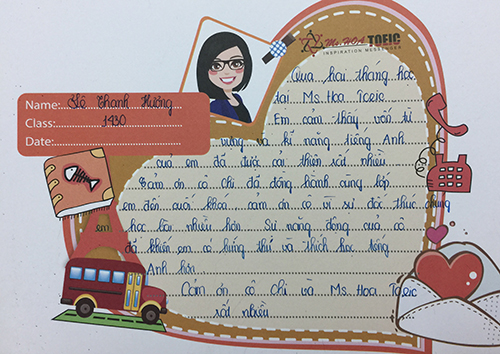 Ms. HOA TOEIC
INSPIRATION MESSENGER
Name: Lê Thanh Hường
Class: 1430
Date:
Qua hai tháng học
tại Ms Hoa Toeic
Em cảm thấy vốn từ
vựng và kĩ năng tiếng Anh
của em đã được cải thiện rất nhiều
Cảm ơn cô Chi đã đồng hành cùng lớp
em đến cuối khoá cảm ơn cô vì sự đôi thúc chúng
em học bài nhiều hơn. Sự năng động của cô
đã khiến em có hứng thú và thích học tiếng
Anh hơn
Cảm ơn cô Chi và Ms Hoa Toeic
rất nhiều